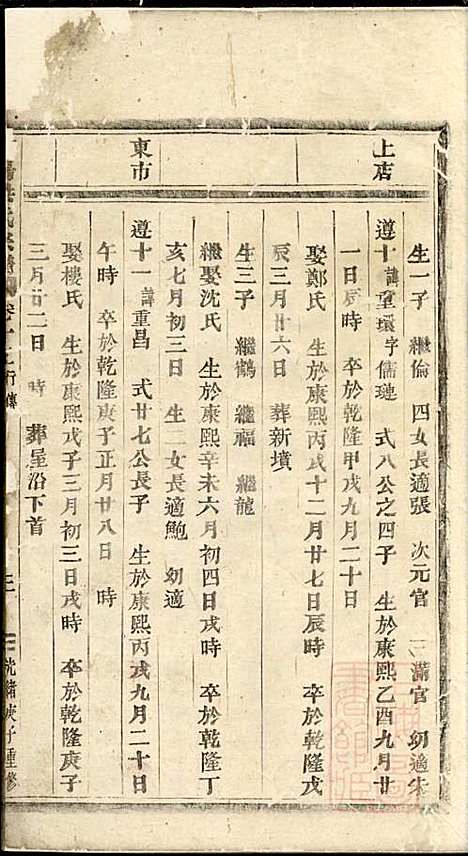 上店
生一子 繼倫 四女長適張 次元官 三滿官 幼適朱
遵十諱重環字儒璉 式八公之四子 生於康熙乙酉九月廿
一日辰時 卒於乾隆甲戌九月二十日
娶鄭氏 生於康熙丙戌十二月廿七日辰時 卒於乾隆戊
辰三月廿六日 葬新墳
生三子 繼鶴 繼福 繼龍
繼娶沈氏 生於康熙辛未六月初四日戌時 卒於乾隆丁
亥七月初三日 生二女長適鮑 幼適
東市
遵十一諱重昌 式廿七公長子 生於康熙丙戌九月二十日
午時 卒於乾隆庚子正月廿八日 時
娶樓氏 生於康熙戊子三月初三日戌時 卒於乾隆庚子
三月廿二日 時 葬屋沿下首
氏宗譜 行傳
光緒庚子重修